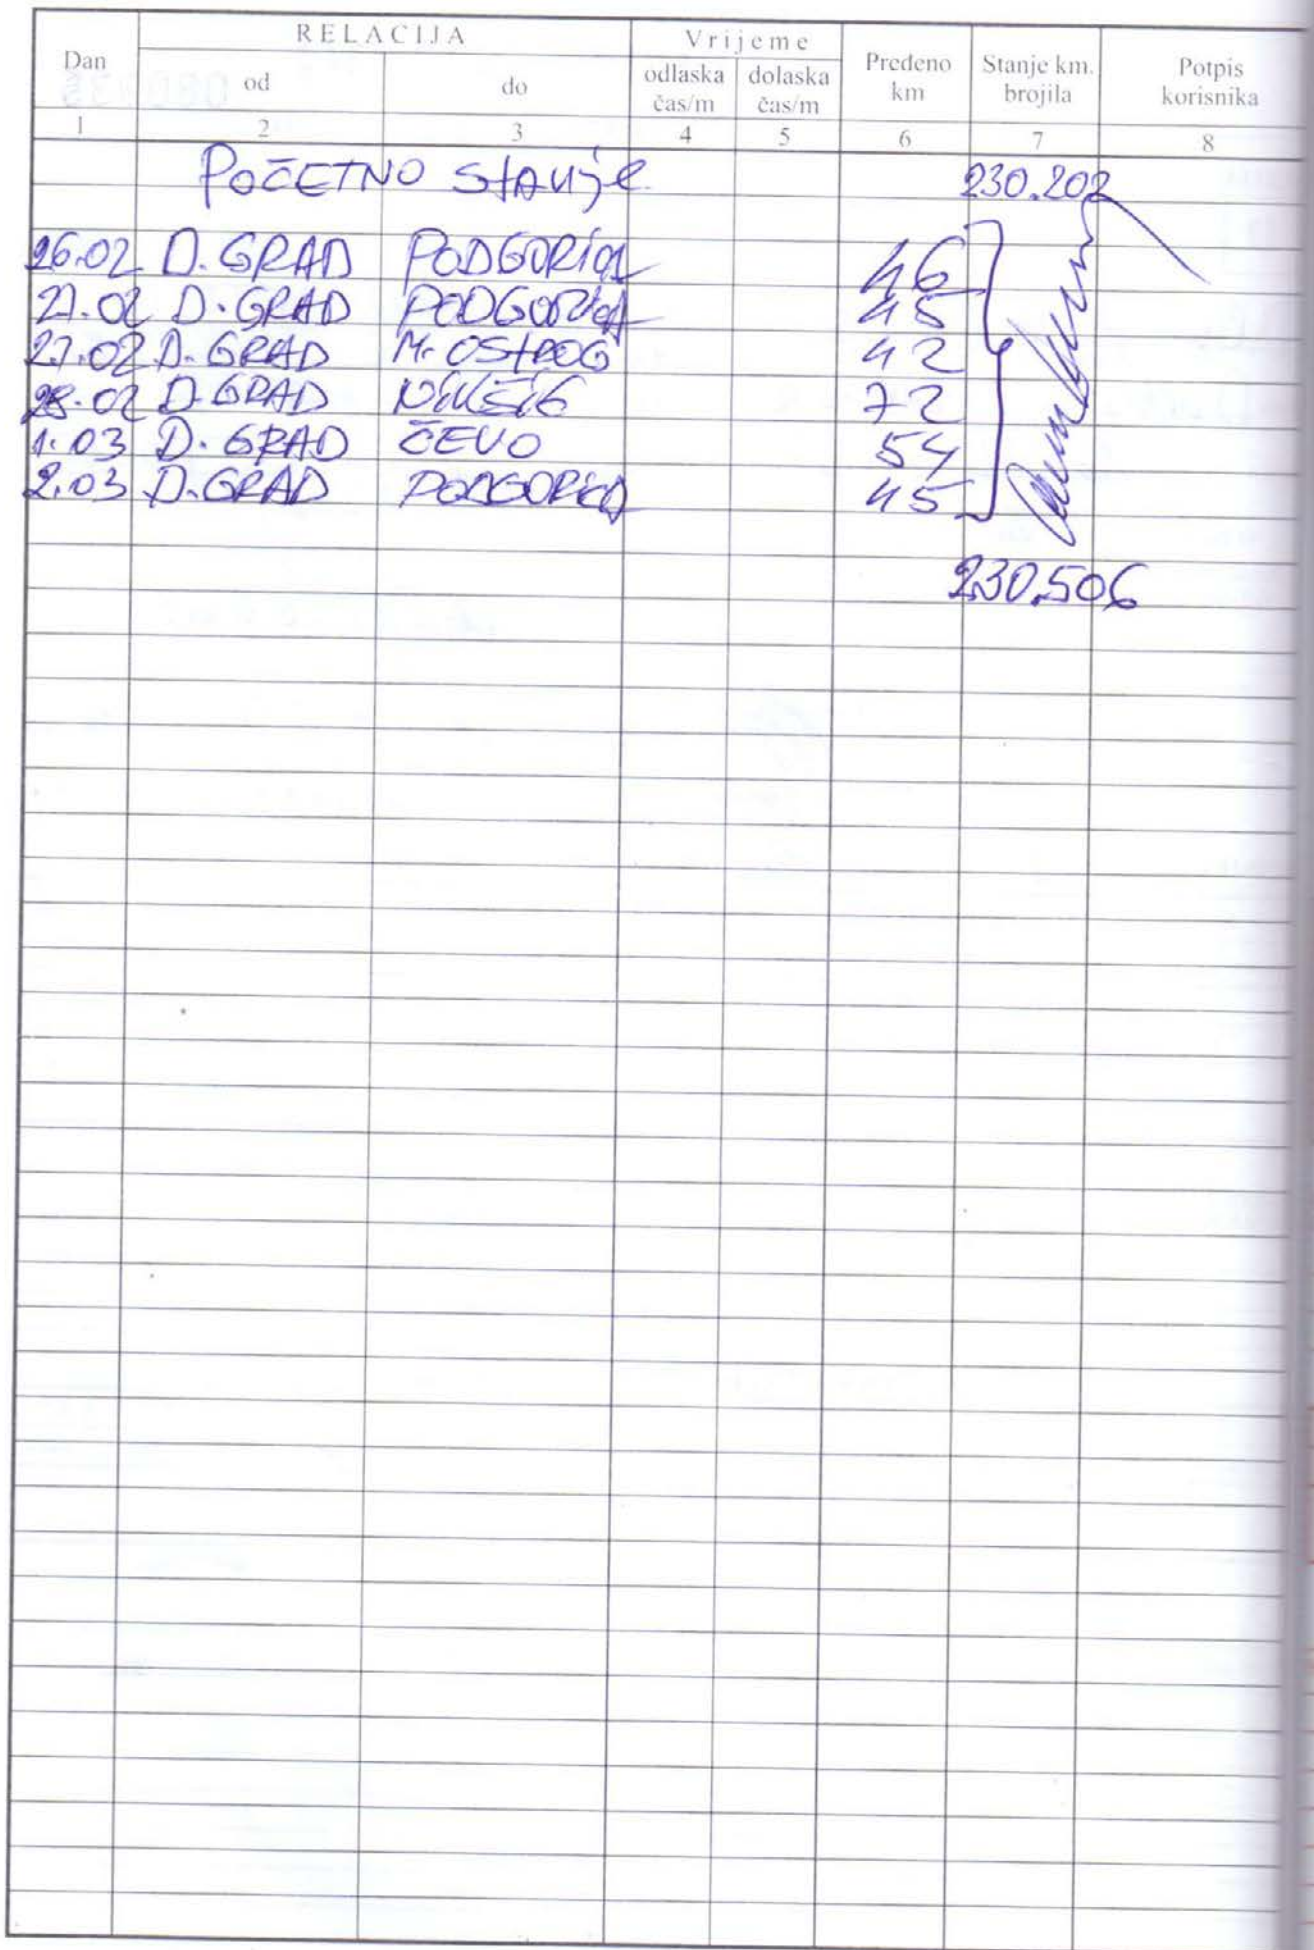 RELACIJA Vrijeme
Dan od do odlaska čas/m dolaska čas/m Pređeno km Stanje km. brojila Potpis korisnika
1 2 3 4 5 6 7 8
POČETNO STANJE 230.202
26.02 D. GRAD PODGORICA 46
27.02 D. GRAD PODGORICA 45
27.02 D. GRAD M. OSTROG 42
28.02 D. GRAD NIKŠIĆ 72
1.03 D. GRAD ČEVO 54
2.03 D. GRAD PODGORICA 45
230.506